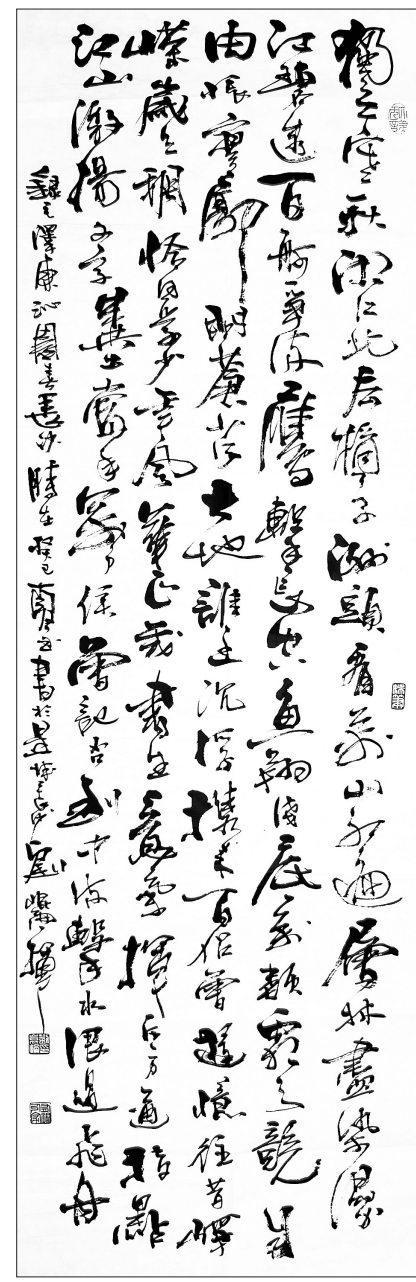 獨立寒秋湘江北去橘子洲頭看萬山紅遍層林盡染漫
江碧透百舸爭流鷹擊長空魚翔淺底萬類霜天競自
由悵寥廓問蒼茫大地誰主沉浮攜來百侶曾遊憶往昔崢
嶸歲月稠恰同學少年風華正茂書生意氣揮斥方遒指點
江山激揚文字糞土當年萬戶侯曾記否到中流擊水浪遏飛舟
錄毛澤東沁園春長沙時在癸巳書於星城長沙